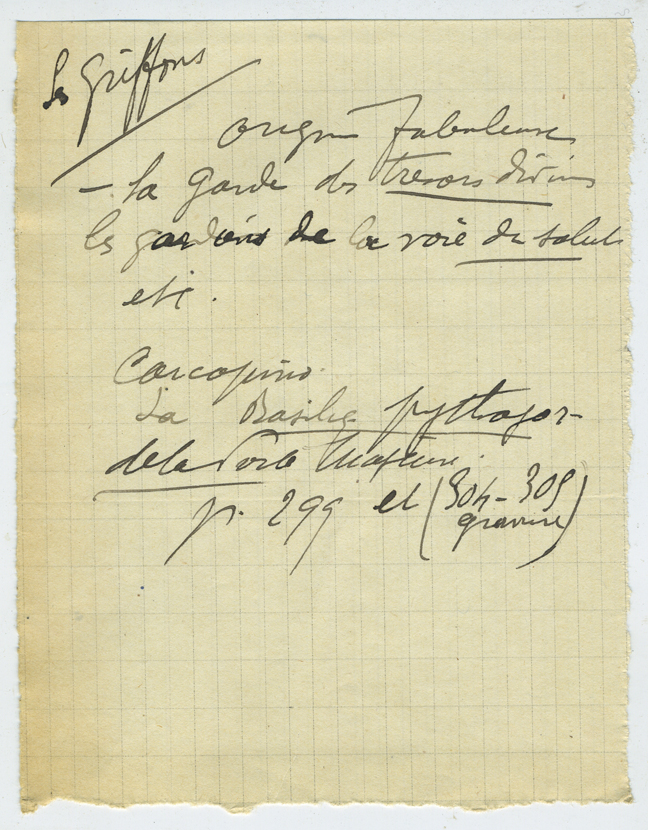 Les Griffons
origine fabuleuse
– la garde des tresors divins
les gardiens de la voie du salut
etc.
Carcopino.
La Basilique pythagor-
de la Porte Majeure.
p. 299 et (304-305
gravure)